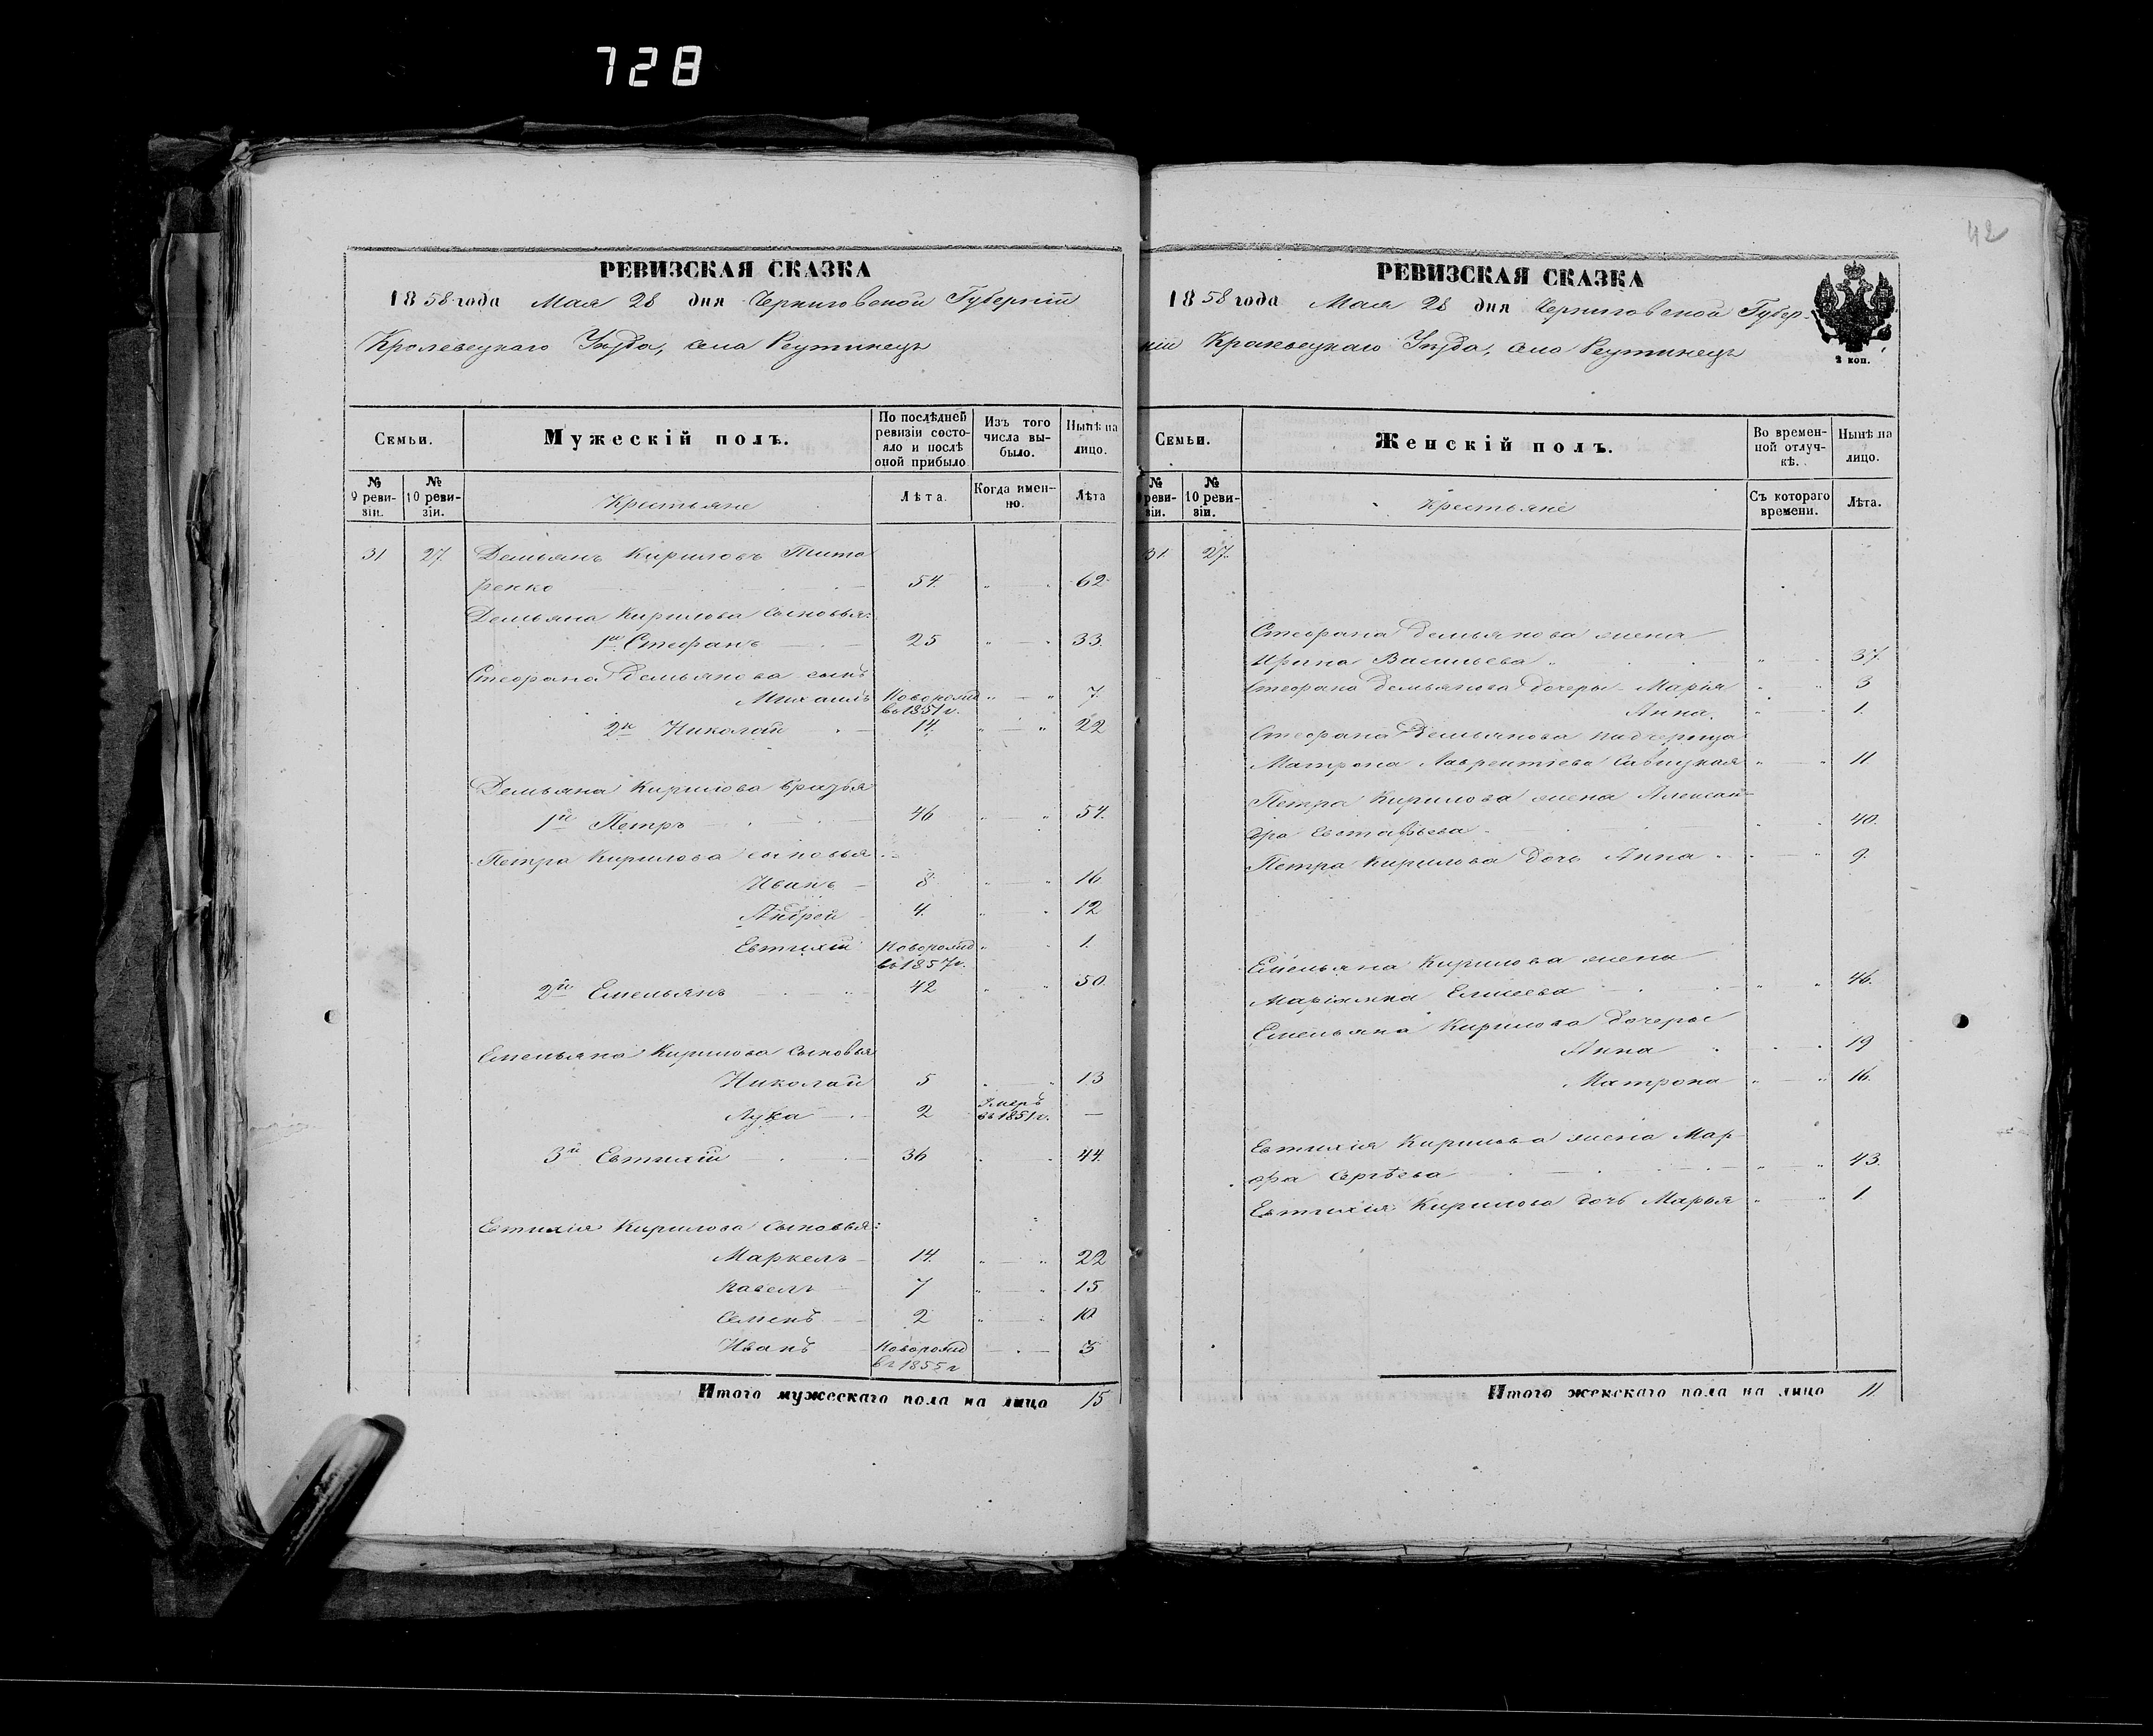 728
42
РЕВИЗСКАЯ СКАЗКА
1858 года Мая 28 дня Черниговской Губерніи
Кролевецкаго Уѣзда, села Реутинецъ
Семьи.
Мужескій полъ.
По послѣдней ревизіи состояло и послѣ оной прибыло
Изъ того числа выбыло.
Нынѣ на лицо.
№ 9 ревизіи.
№ 10 ревизіи.
Крестьяне
Лѣта.
Когда именно.
Лѣта
31 27. Демьянъ Кириловъ Тита
ренко 54. 62
Демьяна Кирилова сыновья:
1й Стефанъ 25 33.
Стефана Демьянова сынъ
Михаилъ Новорожд въ 1851 г. 7.
2й Николай 14. 22
Демьяна Кирилова братья
1й Петръ 46 54.
Петра Кирилова сыновья
Иванъ 8 16
Андрей 4. 12
Евтихій Новорожд въ 1857 г. 1.
2й Емельянъ 42 50.
Емельяна Кирилова сыновья
Николай 5 13
Лука 2 Умеръ въ 1851 г. —
3й Евтихій 36 44.
Евтихія Кирилова сыновья:
Маркелъ 14. 22
Павелъ 7 15
Семенъ 2 10
Иванъ Новорожд въ 1855 г 3
Итого мужескаго пола на лицо 15
РЕВИЗСКАЯ СКАЗКА
1858 года Мая 28 дня Черниговской Губер-
ніи Кролевецкаго Уѣзда, село Реутинецъ
2 коп.
Семьи.
Женскій полъ.
Во временной отлучкѣ.
Нынѣ на лицо.
ревизіи.
№ 10 ревизіи.
Крестьяне
Съ котораго времени.
Лѣта.
31. 27.
Стефана Демьянова жена
Ирина Васильева 37.
Стефана Демьянова дочеры Марія 3
Анна. 1.
Стефана Демьянова падчерица
Матрона Лаврентіева Савицкая 11
Петра Кирилова жена Алексан-
дра Евстафьева 40.
Петра Кирилова дочь Анна 9.
Емельяна Кирилова жена
Маріамна Елисеева 46.
Емельяна Кирилова дочеры
Анна 19
Матрона 16.
Евтихія Кирилова жена Мар-
фа Сергѣева 43.
Евтихія Кирилова дочь Марья 1
Итого женскаго пола на лицо 11.